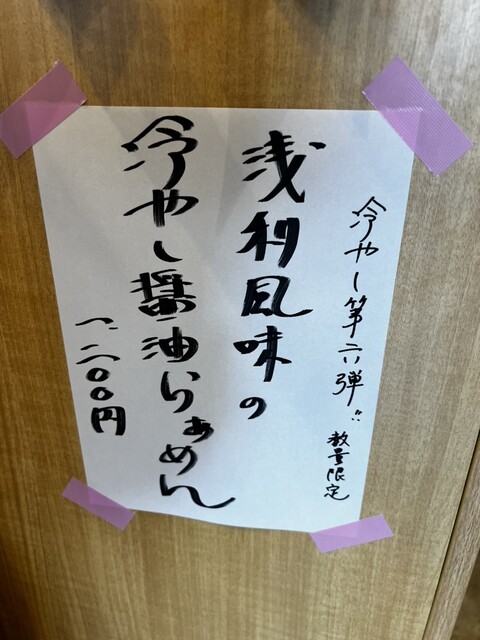 冷やし第六弾!! 数量限定
浅利風味の
冷やし醤油らぁめん
一、二〇〇円